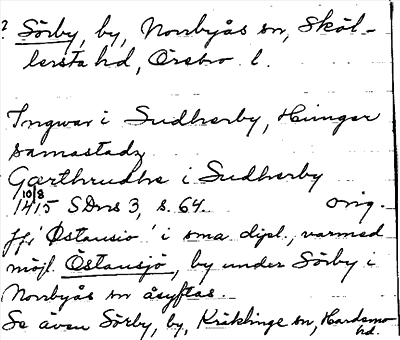 ? Sörby, by, Norrbyås sn, Sköl-
lersta hd, Örebro l.
Ingwar i Sudherby, Hunger
samastadz
Gærthrudhe i Sudherby
10/8
1415 SDns 3, s. 64. orig.
Jfr 'Østansio' i sma dipl., varmed
möjl. Östansjö, by under Sörby i
Norrbyås sn åsyftas.
Se även Sörby, by, Kräklinge sn, Hardemo
hd.